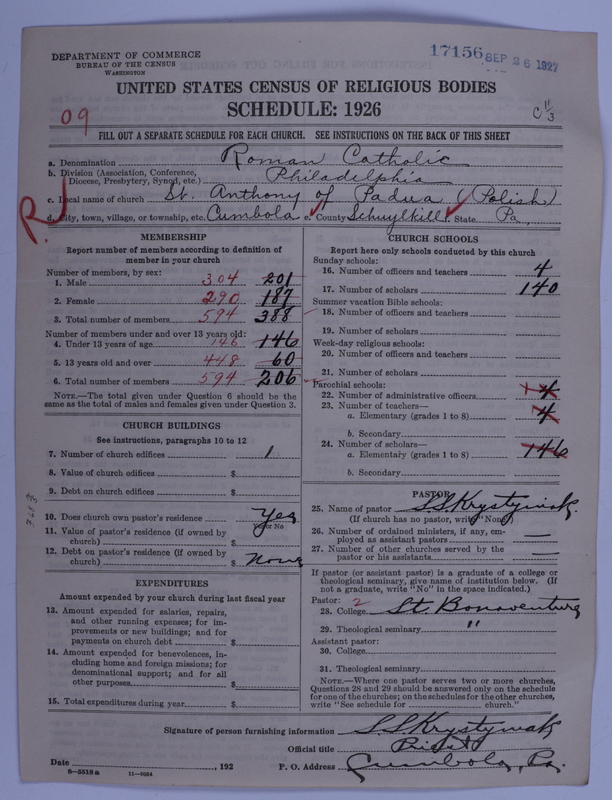 DEPARTMENT OF COMMERCE
BUREAU OF THE CENSUS
WASHINGTON
17156 SEP 26 1927
UNITED STATES CENSUS OF RELIGIOUS BODIES
SCHEDULE: 1926
09
C 11/3
FILL OUT A SEPARATE SCHEDULE FOR EACH CHURCH. SEE INSTRUCTIONS ON THE BACK OF THIS SHEET
a. Denomination Roman Catholic
b. Division (Association, Conference, Diocese, Presbytery, Synod, etc.) Philadelphia
c. Local name of church St. Anthony of Padua (Polish)
R
d. City, town, village, or township, etc. Cumbola e. County Schuylkill f. State Pa.
MEMBERSHIP
Report number of members according to definition of
member in your church
Number of members, by sex:
1. Male 304 201
2. Female 290 187
3. Total number of members 594 388
Number of members under and over 13 years old:
4. Under 13 years of age 146 146
5. 13 years old and over 448 60
6. Total number of members 594 206
NOTE.—The total given under Question 6 should be
same as the total of males and females given under Question 3.
CHURCH BUILDINGS
See instructions, paragraphs 10 to 12
7. Number of church edifices 1
8. Value of church edifices $
9. Debt on church edifices $
10. Does church own pastor's residence Yes
Yes or No
11. Value of pastor's residence (if owned by
church) $
12. Debt on pastor's residence (if owned by
church) $ None
EXPENDITURES
Amount expended by your church during last fiscal year
13. Amount expended for salaries, repairs,
and other running expenses; for im-
provements or new buildings; and for
payments on church debt $
14. Amount expended for benevolences, in-
cluding home and foreign missions; for
denominational support; and for all
other purposes $
15. Total expenditures during year $
CHURCH SCHOOLS
Report here only schools conducted by this church
Sunday schools:
16. Number of officers and teachers 4
17. Number of scholars 140
Summer vacation Bible schools:
18. Number of officers and teachers
19. Number of scholars
Week-day religious schools:
20. Number of officers and teachers
21. Number of scholars
Parochial schools:
22. Number of administrative officers
23. Number of teachers—
a. Elementary (grades 1 to 8) 4
b. Secondary
24. Number of scholars—
a. Elementary (grades 1 to 8) 146
b. Secondary
PASTOR
25. Name of pastor S S Krystyniak.
(If church has no pastor, write "None")
26. Number of ordained ministers, if any, em-
ployed as assistant pastors —
27. Number of other churches served by the
pastor or his assistants —
If pastor (or assistant pastor) is a graduate of a college or
theological seminary, give name of institution below. (If
not a graduate, write "No" in the space indicated.)
Pastor: 2
28. College St. Bonaventure
29. Theological seminary "
Assistant pastor:
30. College
31. Theological seminary
NOTE.—Where one pastor serves two or more churches,
Questions 28 and 29 should be answered only on the schedule
for one of the churches; on the schedules for the other churches,
write "See schedule for church."
Signature of person furnishing information S S Krystyniak
Official title Priest
Date , 192 P. O. Address Cumbola, Pa.
8—5518 a 11—9054